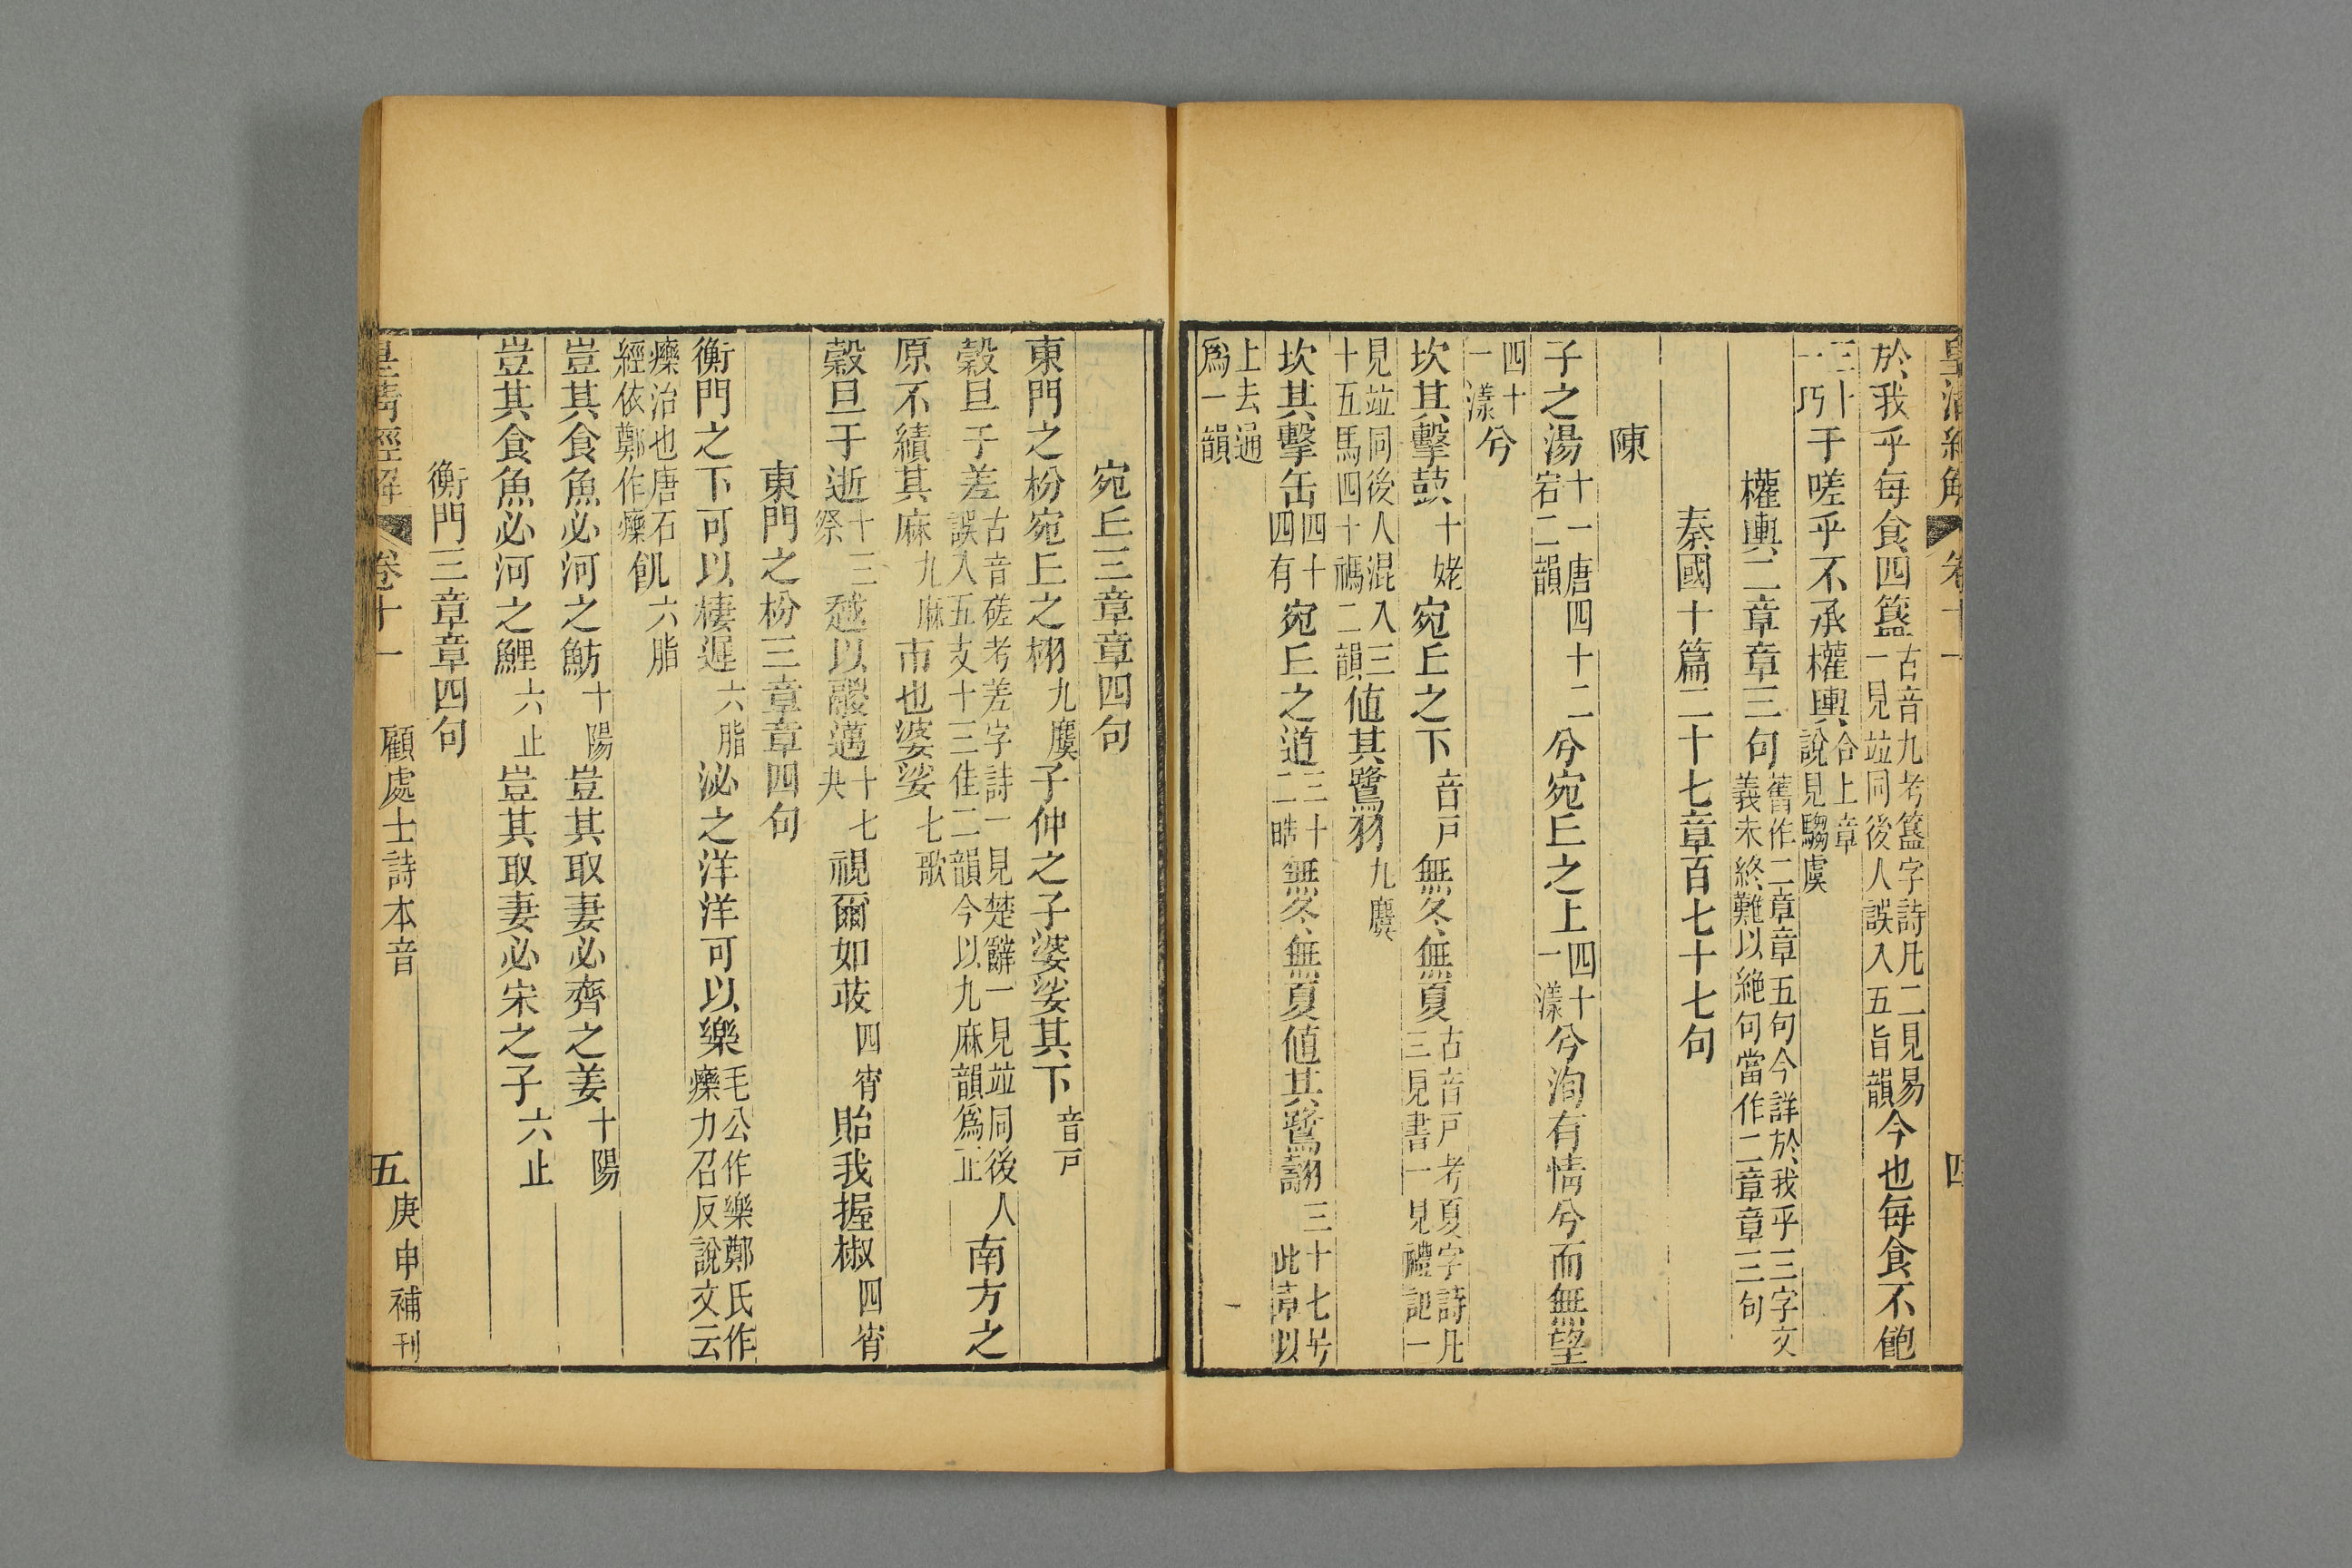 皇清經解 卷十一 四
於我乎每食四簋古音九考簋字詩凡二見易一見竝同後人誤入五旨韻今也每食不飽
三十一巧于嗟乎不承權輿合上章說見騶虞
權輿二章章三句舊作二章章五句今詳於我乎三字文義未終難以絶句當作二章章三句
秦國十篇二十七章百七十七句
陳
子之湯十一唐四十二宕二韻兮宛丘之上四十一漾兮洵有情兮而無望
四十一漾兮
坎其擊鼓十姥宛丘之下音戸無冬無夏古音戸考夏字詩凡三見書一見禮記一
見竝同後人混入三十五馬四十禡二韻值其鷺羽九麌
坎其擊缶四十四有宛丘之道三十二晧無冬無夏值其鷺翿三十七号此章以
上去通爲一韻
宛丘三章章四句
東門之枌宛丘之栩九麌子仲之子婆娑其下音戸
穀旦于差古音磋考差字詩一見楚辭一見竝同後人誤入五支十三佳二韻今以九麻韻爲正南方之
原不績其麻九麻市也婆娑七歌
穀旦于逝十三祭越以鬷邁十七夬視爾如荍四宵貽我握椒四宵
東門之枌三章章四句
衡門之下可以棲遲六脂泌之洋洋可以樂毛公作樂鄭氏作𤻲力召反說文云
𤻲治也唐石經依鄭作𤻲飢六脂
豈其食魚必河之魴十陽豈其取妻必齊之姜十陽
豈其食魚必河之鯉六止豈其取妻必宋之子六止
衡門三章章四句
皇清經解 卷十一 顧處士詩本音 五 庚申補刊